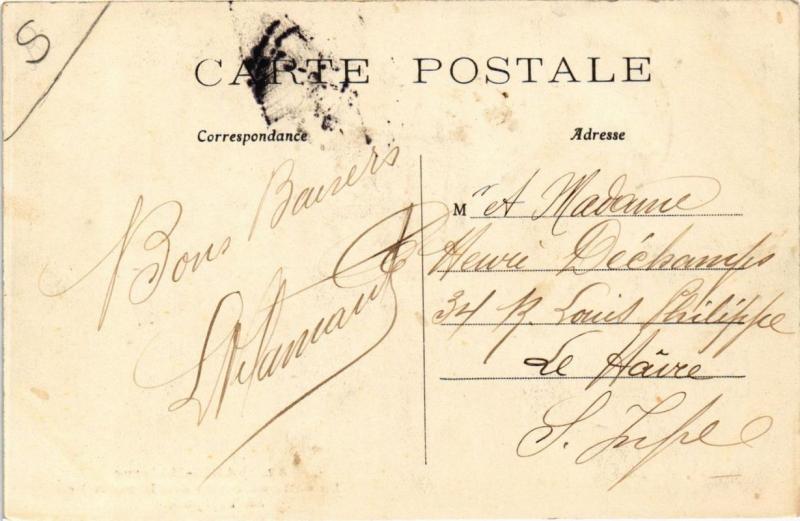 S
CARTE POSTALE
Correspondance
Adresse
Bons Baisers
Mr et Madame
Henri Déchamps
34 R. Louis Philippe
Le Hâvre
S. Infre